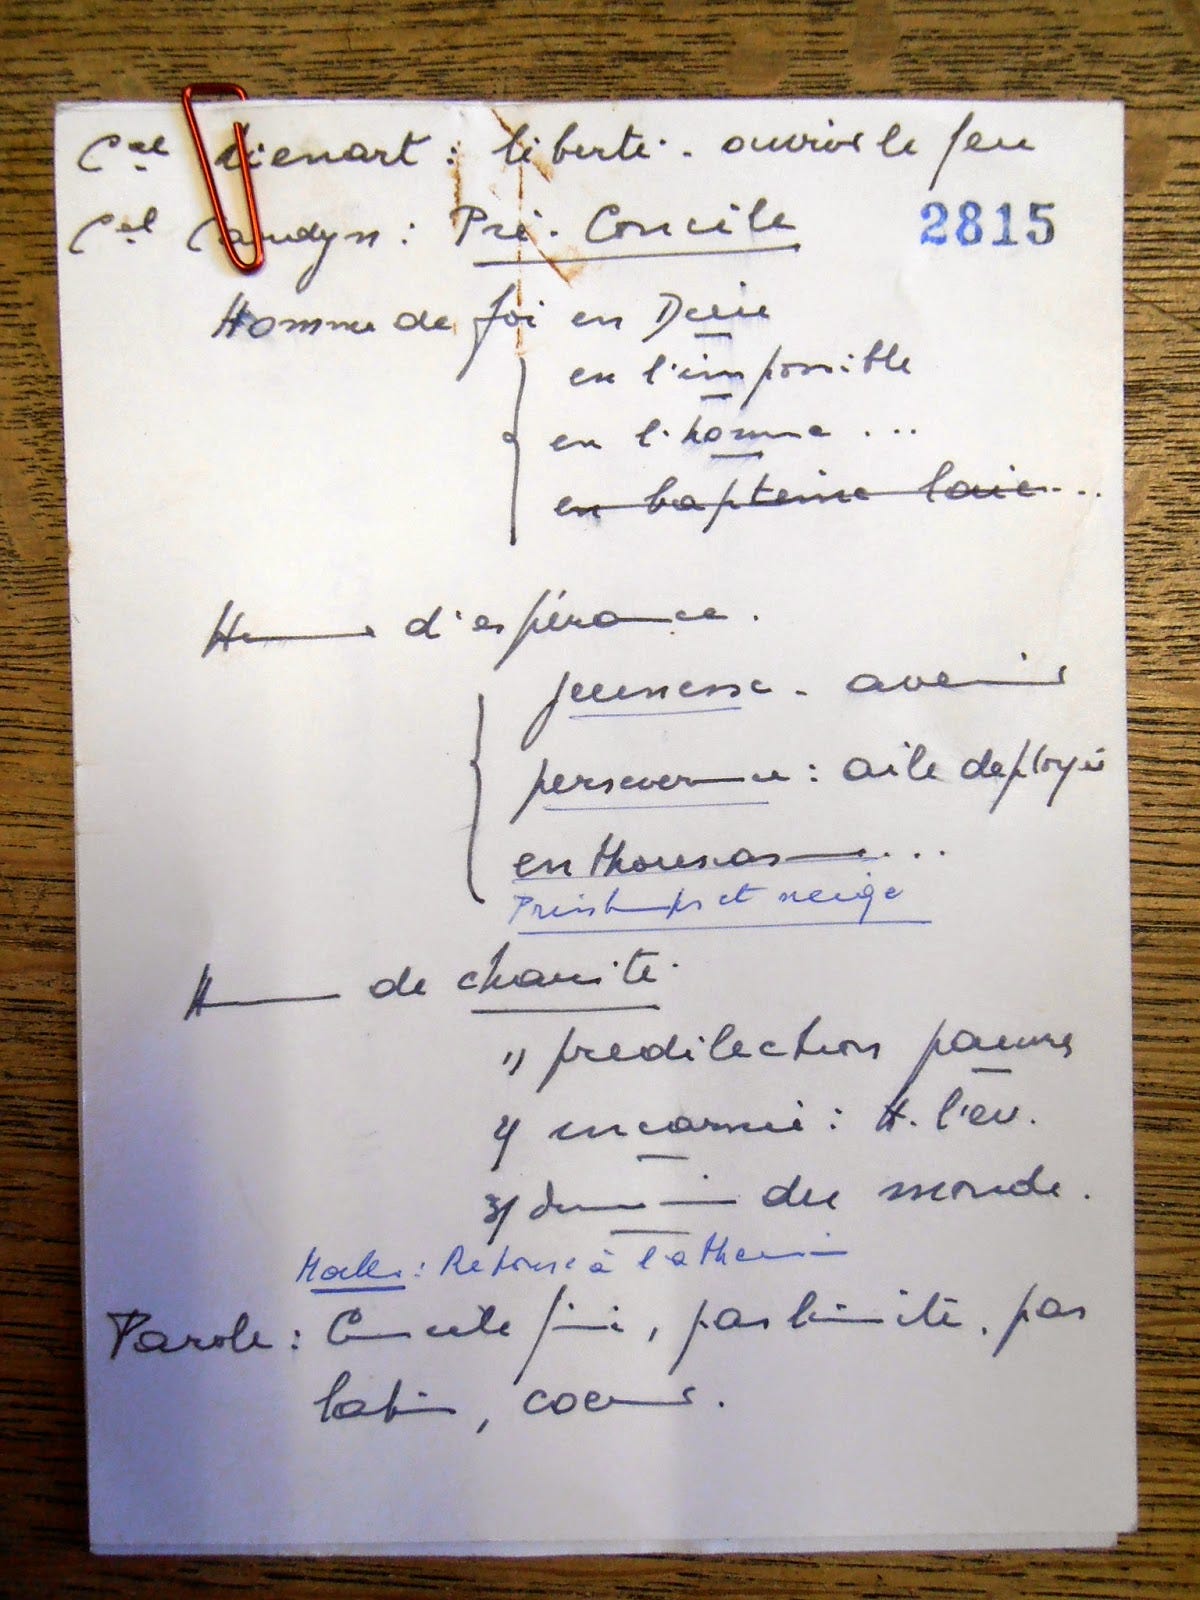 Cal Lienart : liberté. ouvrir le feu
Cal Cardyn : Pré-Concile 2815
Homme de foi en Dieu
en l'impossible
en l'homme ...
en bapteme laic ...
H——— d'espérance.
jeunesse - avenir
perseverance : aile deployée
enthousiasme ...
Printemps et neige
H——— de charité.
1) predilection pauvres
2) incarnée :
3) du monde.
: Retour à
Parole : Concile fini, pas limité, pas
latin, coeur.